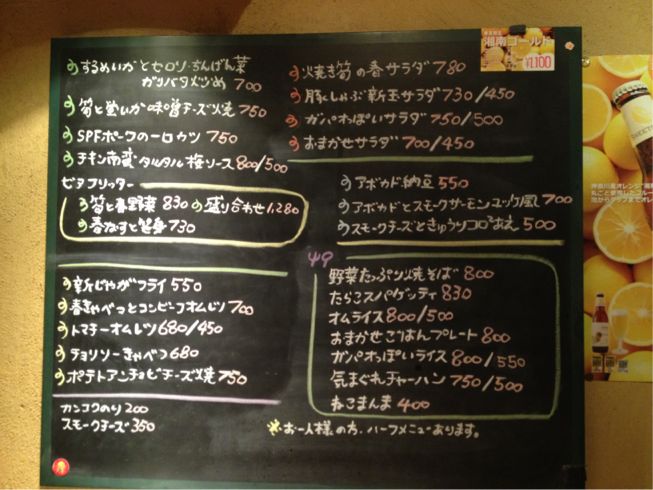 するめいかとセロリ・ちんげん菜
ガリバタ炒め 700
筍と蛍いか味噌チーズ焼 750
SPFポークの一口カツ 750
チキン南蛮・タルタル梅ソース 800/500
ビアフリッター
筍と春野菜 830 盛り合わせ 1,280
730
新じゃがフライ 550
春きゃべつとコンビーフオムレツ 700
トマチーオムレツ 680/450
チョリソーきゃべつ 680
ポテトアンチョビチーズ焼 750
カンコクのり 200
スモークチーズ 350
焼き筍の春サラダ 780
豚しゃぶ新玉サラダ 730/450
ガパオっぽいサラダ 750/500
おまかせサラダ 700/450
アボカド納豆 550
アボカドとスモークサーモンユッケ風 700
スモークチーズときゅうりコロコロあえ 500
野菜たっぷり焼そば 800
たらこスパゲッティ 830
オムライス 800/500
おまかせごはんプレート 800
ガパオっぽいライス 800/550
気まぐれチャーハン 750/500
ねこまんま 400
※お一人様の方、ハーフメニューあります。
湘南ゴールド
¥1,100